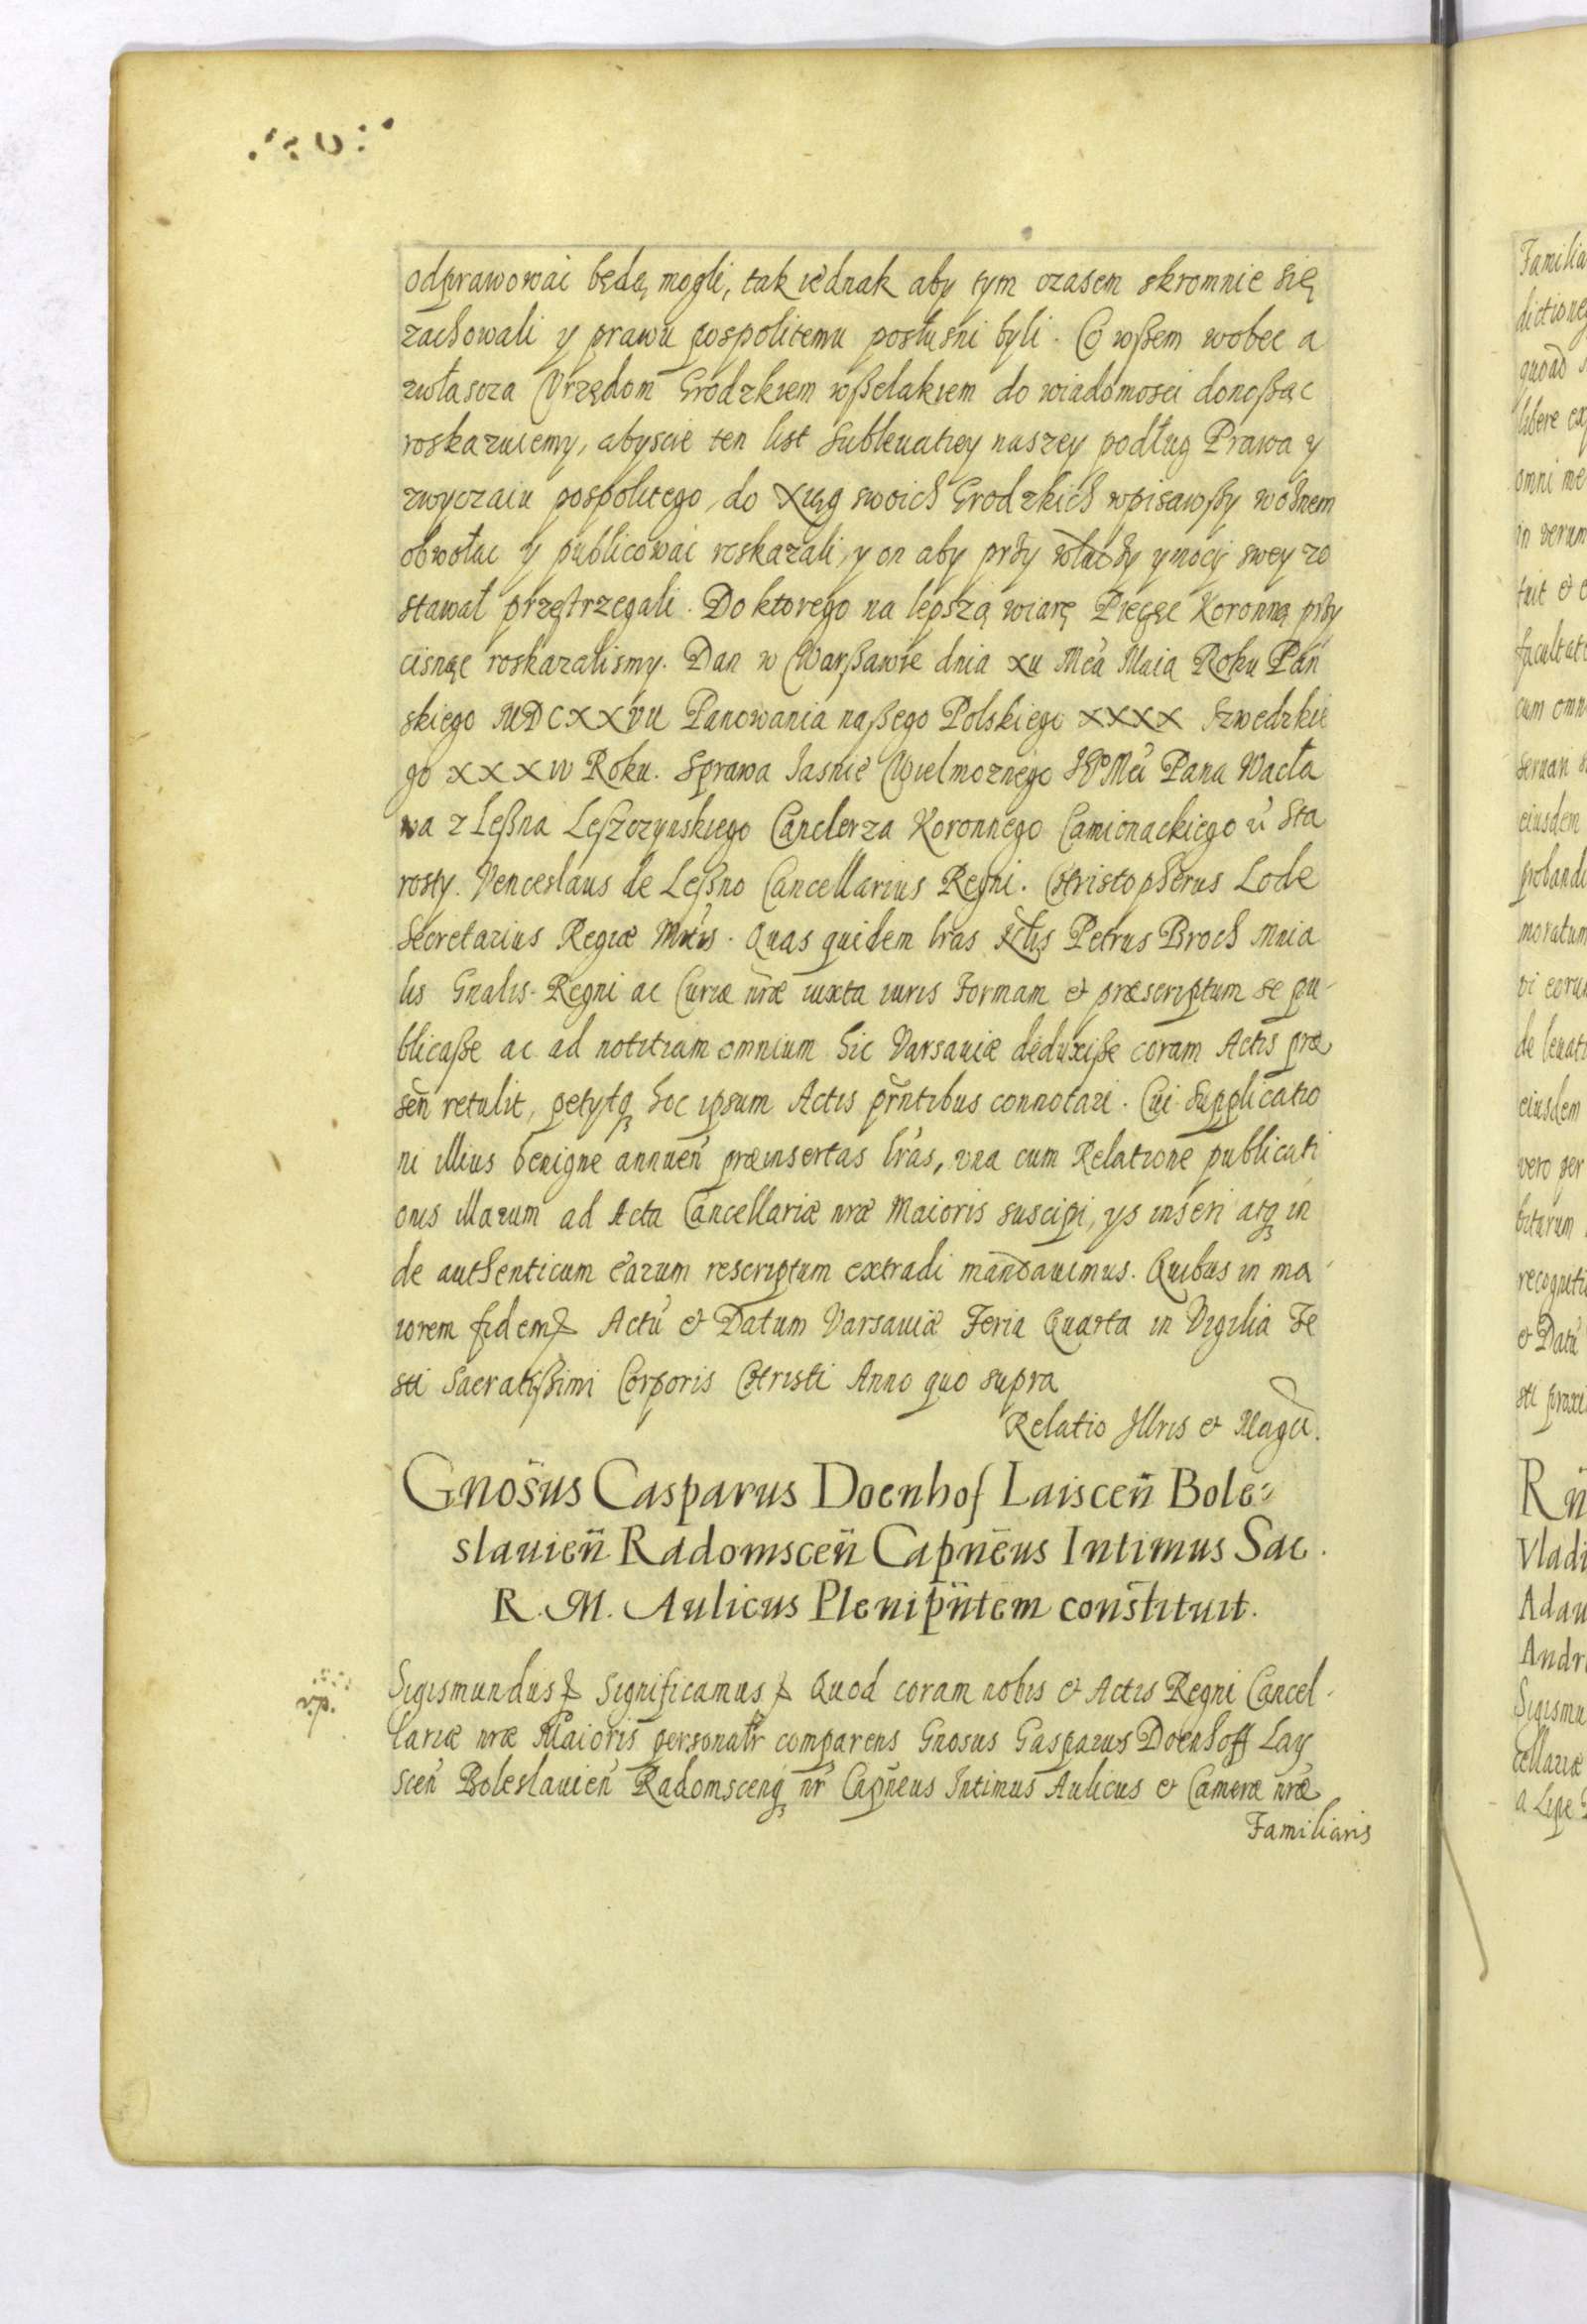 odprawować będą mogli, tak iednak aby tym czasem skromnie się
zachowali y prawu pospolitemu posłusni byli. Co wßem wobec a
zwłascza Vrzędom Grodzkiem wßelakiem do wiadomosci donoßąc
roskazuiemy, abyscie ten list Subleuatiey naszey podług Prawa y
zwyczaiu pospolitego, do Xiąg swoich Grodzkich wpisawßy woźnem
obwołac y publicowac roskazali, y on aby przy władzy y mocy swey zo
stawał przestrzegali. Do ktorego na lepszą wiarę Pieczęc Koronną przy
cisnąc roskazalismy. Dan w Warßawie dnia XII Mca Maia Roku Pan
skiego MDCXXVII Panowania naßego Polskiego XXXX Szwedzkie
go XXXIV Roku. Sprawa Jasnie Wielmoznego JEo Mci Pana Wacła
wa z Leßna Leßczynskiego Canclerza Koronnego Camionackiego & Sta
rosty. Venceslaus de Leßno Cancellarius Regni. Christopherus Lode
Secretarius Regiæ Mtis. Quas quidem lras Petrus Broch Mnia
lis Gnalis Regni ac Curiæ nræ iuxta iuris Formam et præscriptum se pu-
blicaße ac ad notitiam omnium hic Varsauiæ deduxiße coram Actis præ
sen retulit, petytq hoc ipsum Actis prntibus connotari. Cui Supplicatio
ni illius benigne annuen præinsertas lras, vna cum Relatione publicati
onis illarum ad Acta Cancellariæ nræ Maioris suscipi, ys inseri atq in
de authenticum earum rescriptum extradi mandauimus. Quibus in ma-
iorem fidem & Actu et Datum Varsauiæ Feria Quarta in Vigilia Fe
sti Sacratißimi Corporis Christi Anno quo supra
Relatio Jllris et Magci.
Gnosus Casparus Doenhof Laiscen Bole-
slauien Radomscen Capneus Intimus Sac.
R. M. Aulicus Plenipntem constituit.
Sigismundus & Significamus & Quod coram nobis et Actis Regni Cancel-
lariæ nræ Maioris personalr comparens Gnosus Gasparus Doenhoff Lay
scen Boleslauien Radomscenq nr Capneus Intimus Aulicus et Cameræ nræ
Familiaris